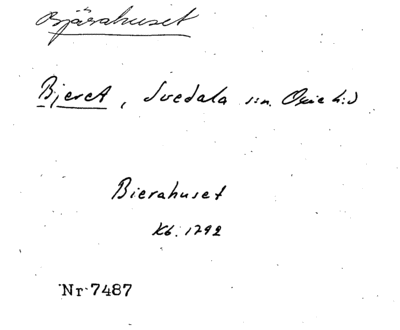 Bjärahuset
Bjeret, Svedala s:n. Oxie h:d
Bierahuset
Kb. 1792
Nr 7487